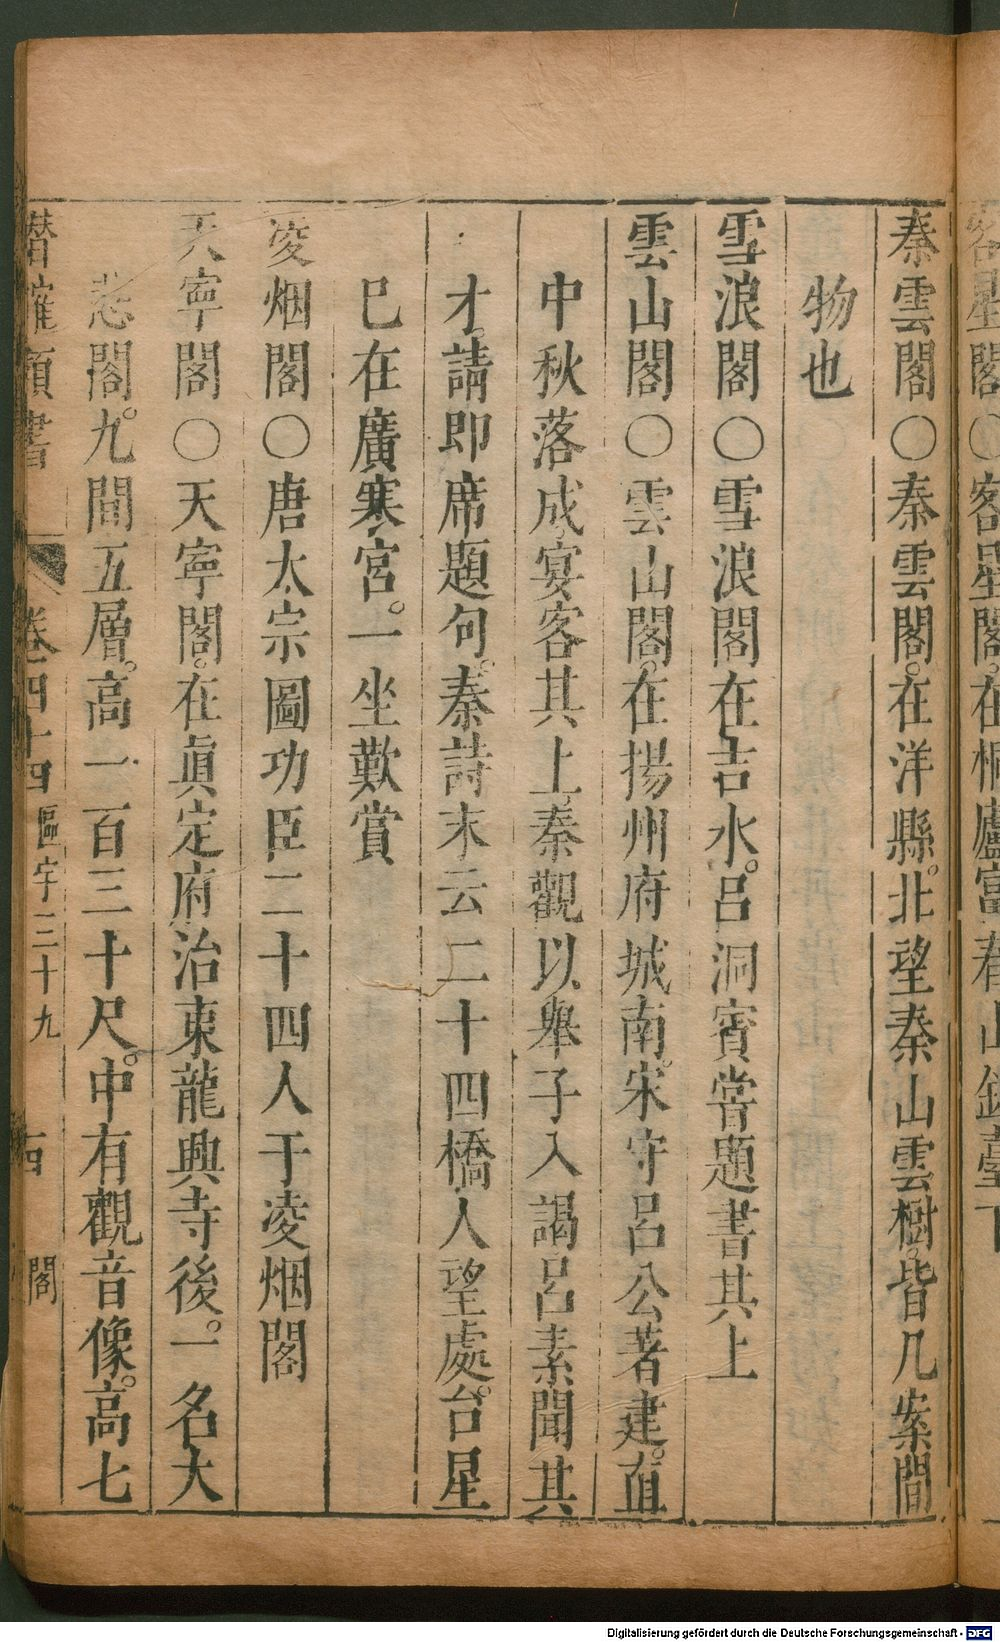 客星閣〇客星閣。在桐廬富春山釣臺下
秦雲閣〇秦雲閣。在洋縣。北望秦山雲樹。皆几案間
物也
雪浪閣〇雪浪閣在吉水。呂洞賓嘗題書其上
雲山閣〇雲山閣。在揚州府城南。宋守呂公著建。值
中秋落成宴客其上。秦觀以舉子入謁呂素聞其
才。請即席題句。秦詩末云二十四橋人望處。台星
已在廣寒宮。一坐歎賞
凌烟閣〇唐太宗圖功臣二十四人于凌烟閣
天寧閣〇天寧閣。在眞定府治東龍興寺後。一名大
悲閣。九間五層。高一百三十尺。中有觀音像。高七
潛確類書 卷四十四 區宇三十九 閣
Digitalisierung gefördert durch die Deutsche Forschungsgemeinschaft - DFG